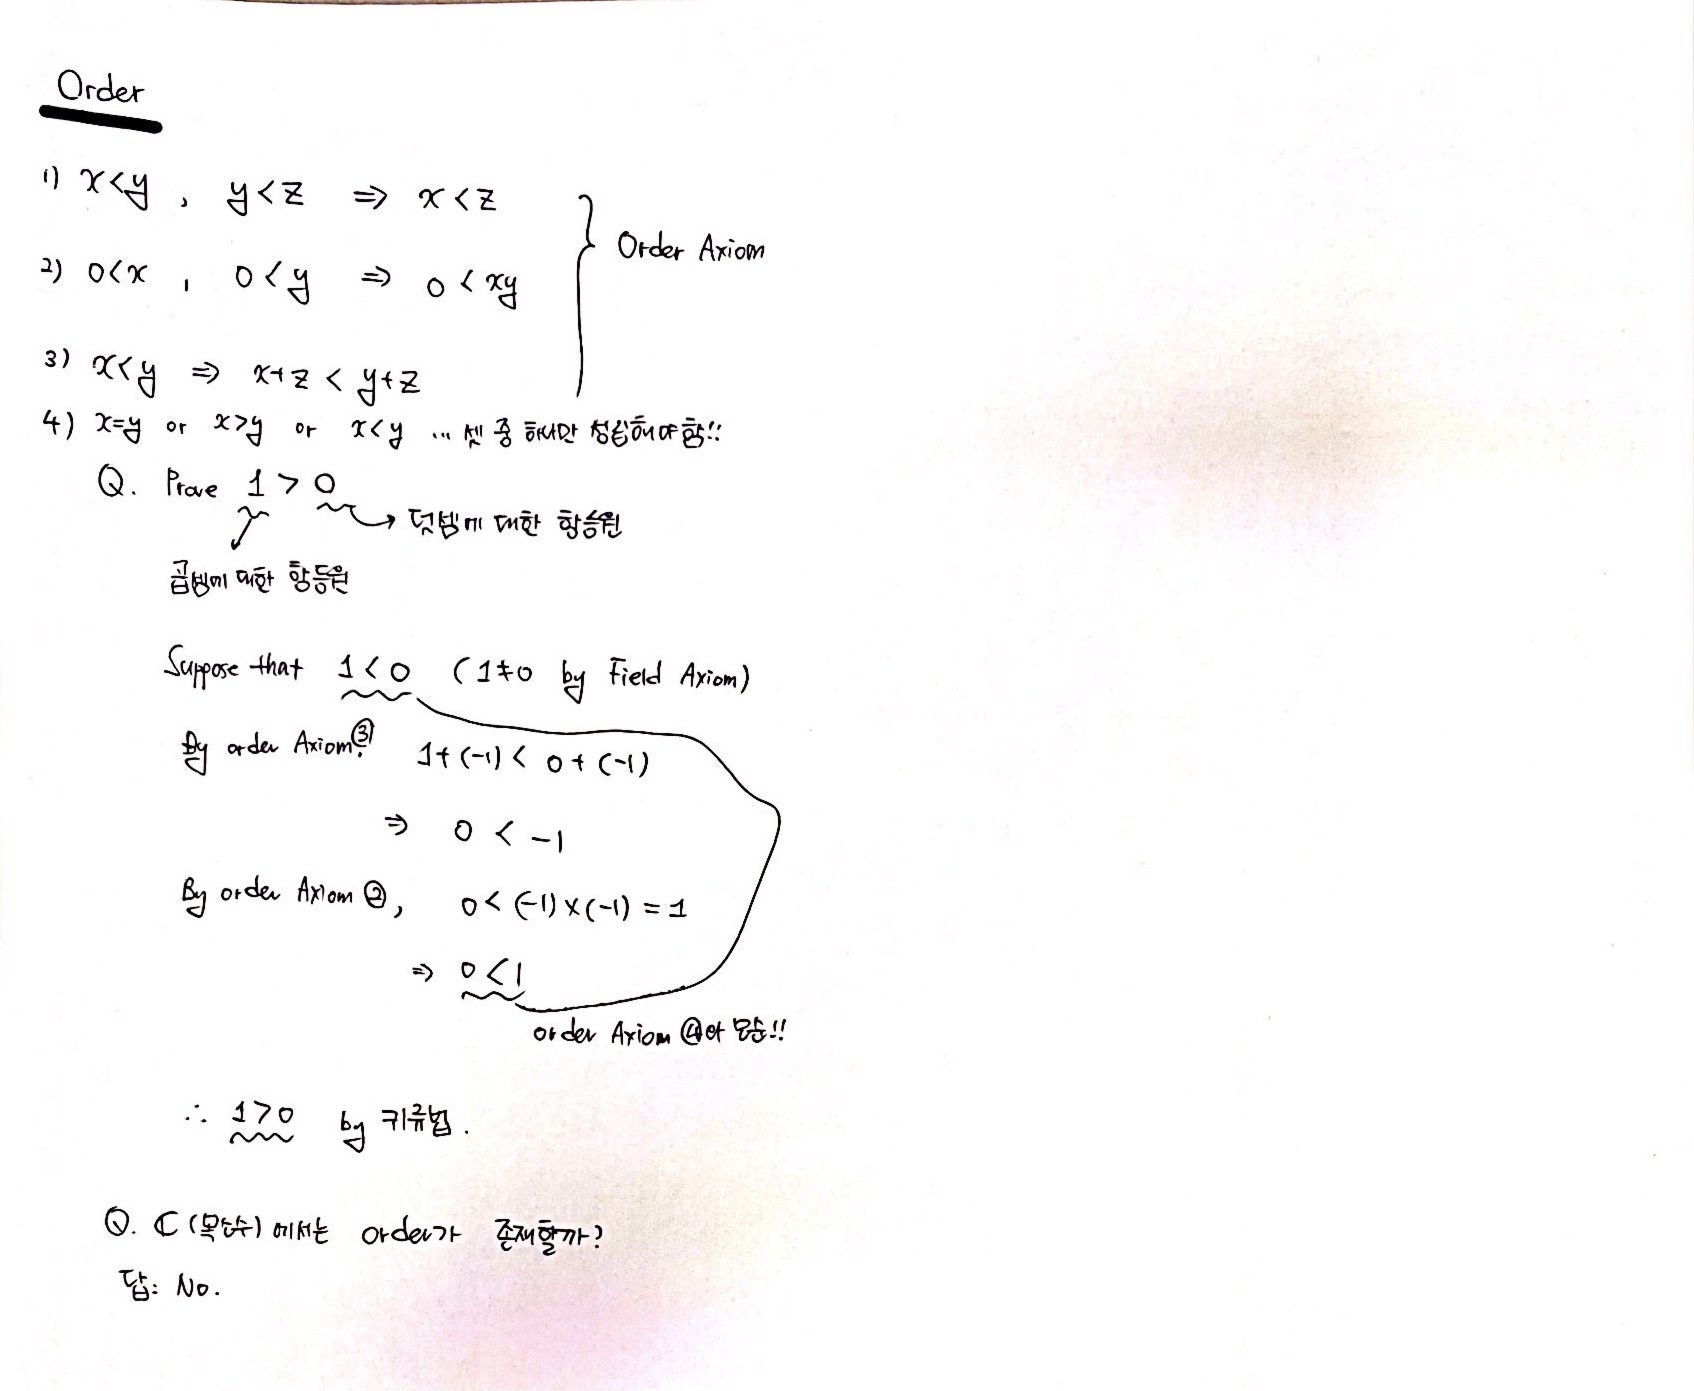 Order
1) x<y , y<z ⇒ x<z
2) 0<x , 0<y ⇒ 0<xy
Order Axiom
3) x<y ⇒ x+z < y+z
4) x=y or x>y or x<y ... 셋 중 하나만 성립해야 함!!
Q. Prove 1 > 0
덧셈에 대한 항등원
곱셈에 대한 항등원
Suppose that 1<0 (1≠0 by Field Axiom)
By order Axiom ③, 1+(-1) < 0+(-1)
⇒ 0 < -1
By order Axiom ②, 0 < (-1)×(-1) = 1
⇒ 0<1
order Axiom ④와 모순!!
∴ 1>0 by 귀류법.
Q. ℂ(복소수)에서는 order가 존재할까?
답: No.